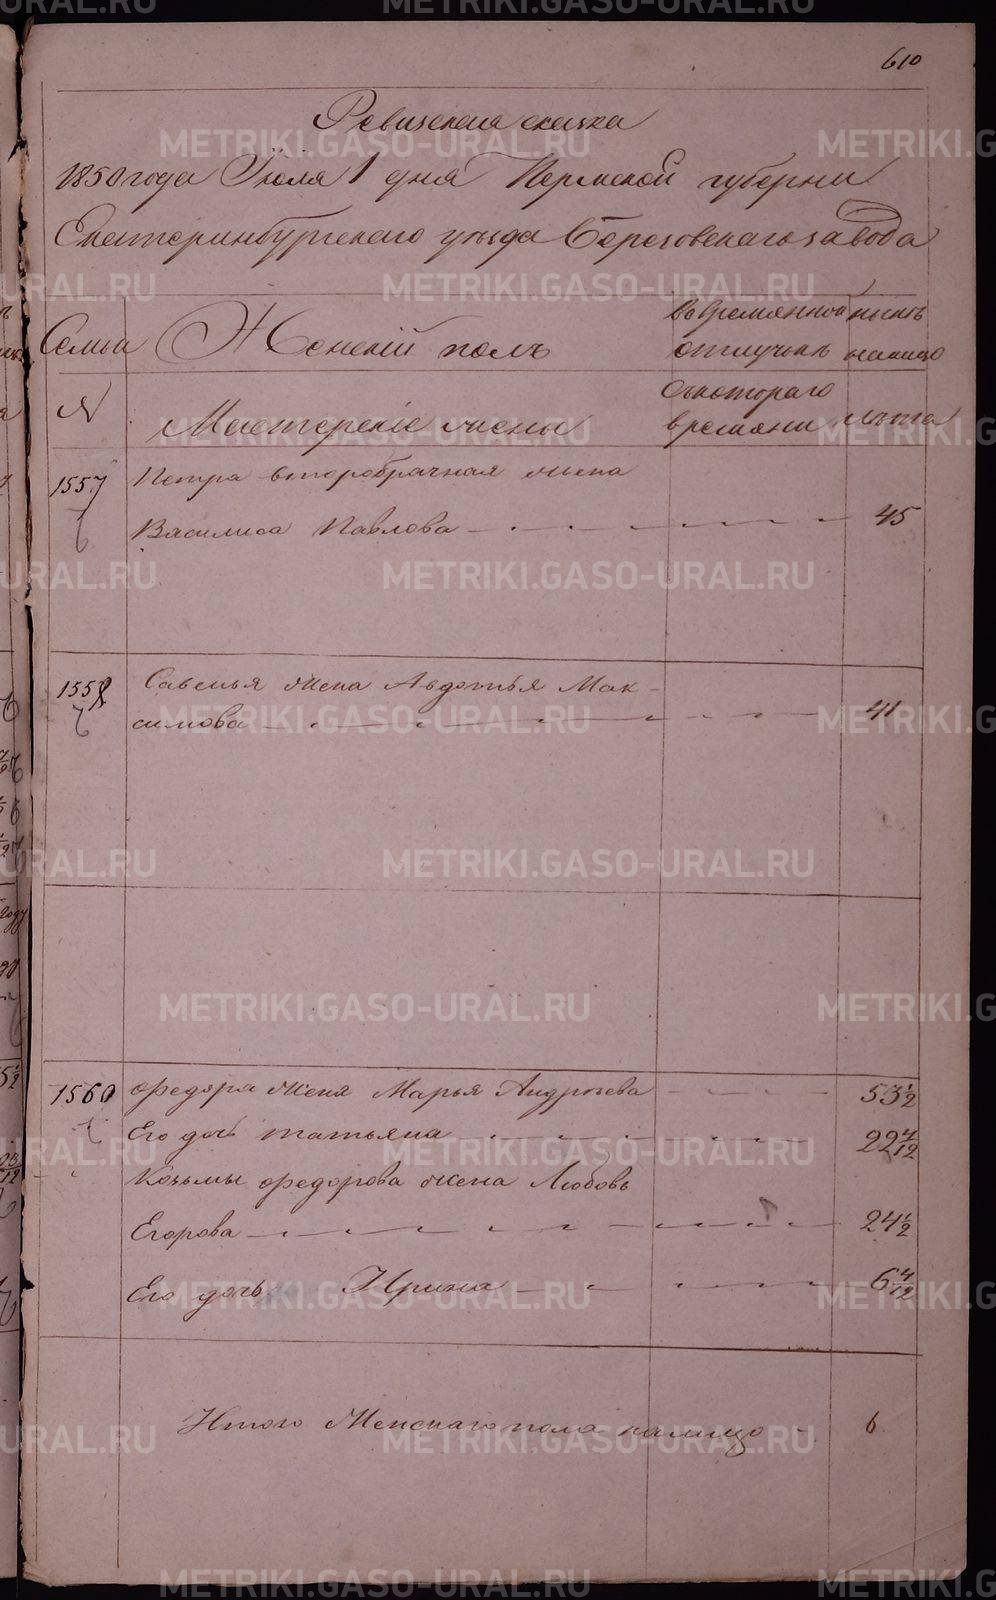 610
Ревизская сказка
1850 года Июля 1 дня Пермской губернии
Екатеринбургскаго уѣзда Березовскаго завода
Семьи Женскій полъ Во временной отлучкѣ нынѣ налицо
N Мастерскіе жены Съ котораго времяни лѣта
1557 Петра второбрачная жена
Василиса Павлова 45
1558 Савелья жена Авдотья Мак-
симова 41
1560 Федора жена Марья Андреева 53 1/2
Его дочь Татьяна 22 4/12
Козьмы Федорова жена Любовь
Егорова 24 1/2
Его дочь Ирина 6 4/12
Итого Женскаго пола налицо 6
METRIKI.GASO-URAL.RU